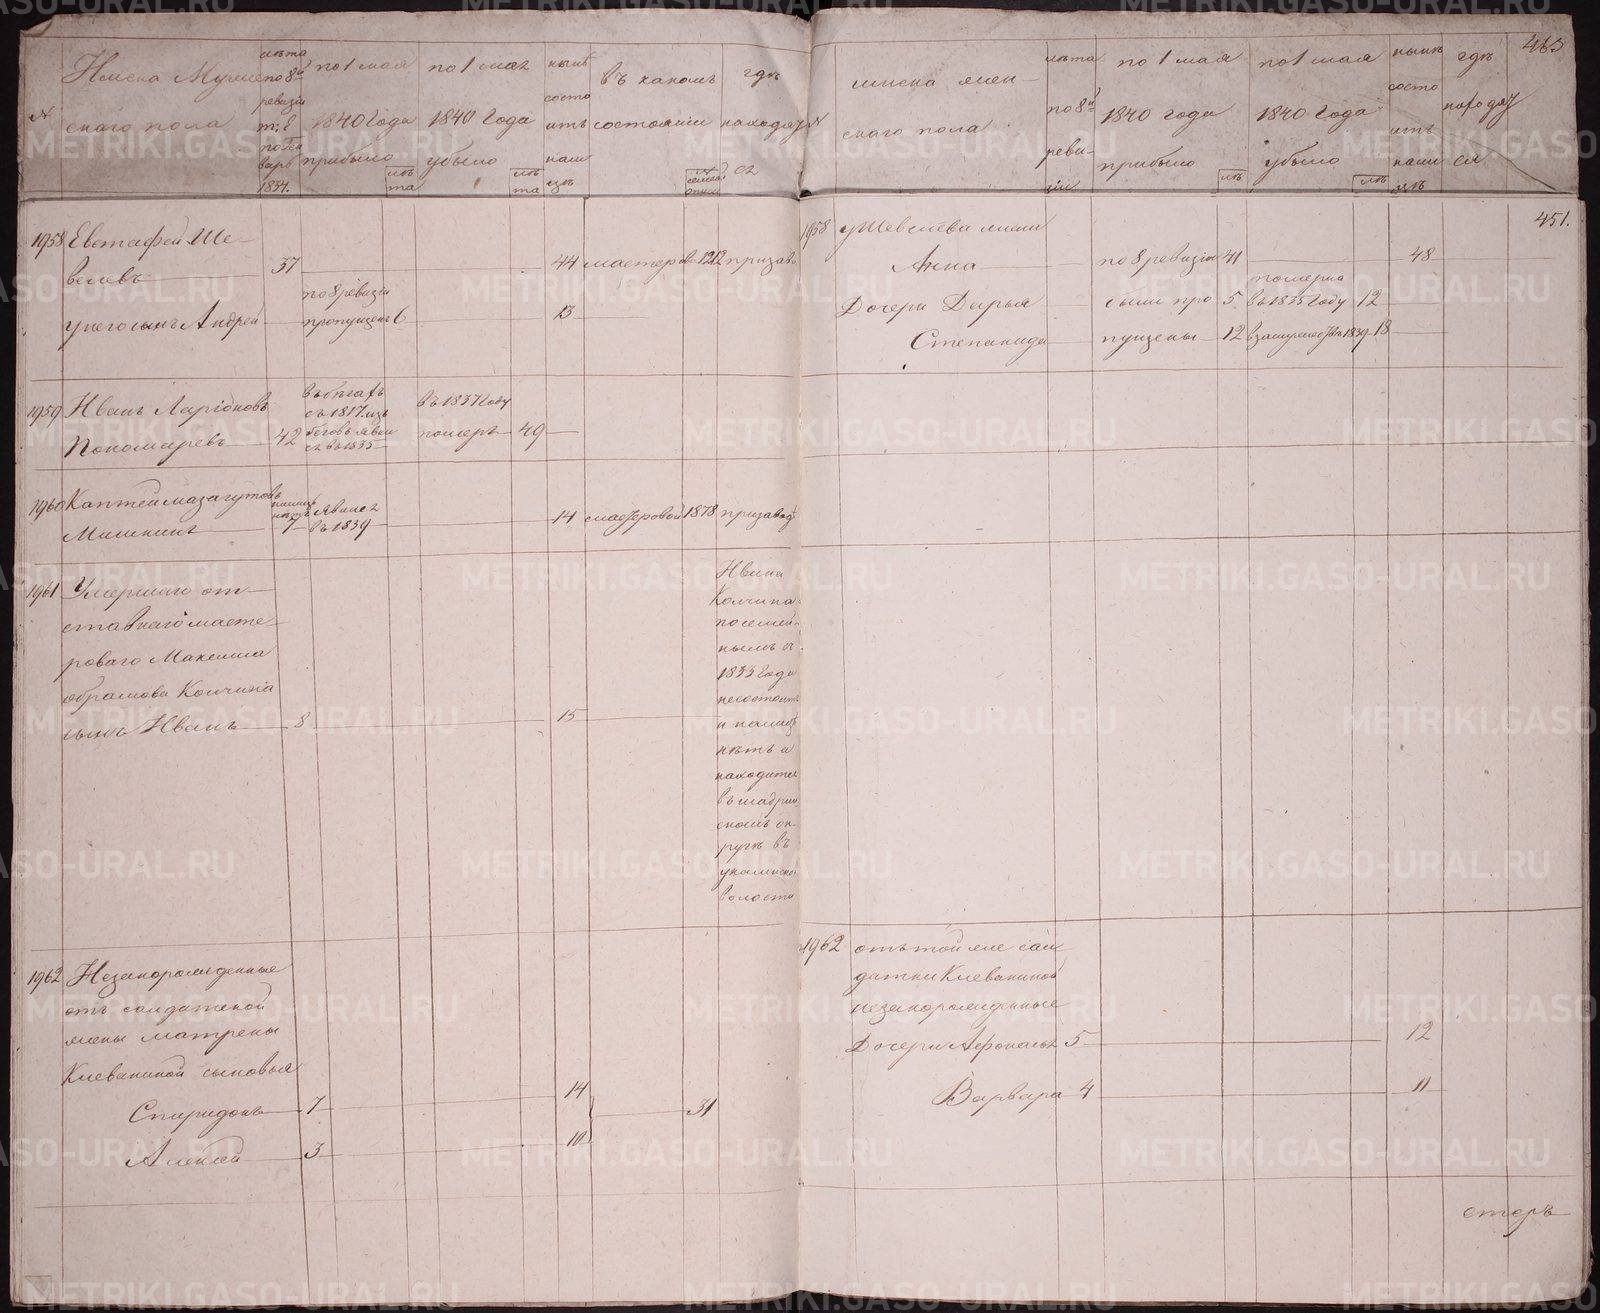 №
Имена Мужес
скаго пола
лѣта
по 8й
ревизіи
т: е
по Ген
варь
1834.
по 1 мая
1840 года
прибыло
лѣ
та
по 1 мая
1840 года
убыло
лѣ
та
нынѣ
состо
итъ
нали
цѣ
въ какомъ
состояніи
№
семей
находят
ся
гдѣ
1958 Евстафей Ше-
велевъ 37 44 мастеров 1212 призав
по 8 ревизіи
у него сынъ Андрей пропущенъ 6 13
1959 Иванъ Ларіоновъ
Пономаревъ 42
въ бѣгахъ
съ 1817. изъ
бѣговъ явил
ся въ 1835
въ 1837 году
померъ 49
1960 Каптей мазагутовъ
Мишкинъ 7
явился
въ 1839
14 мастеровой 1878 призавод
1961 Умершаго от-
ставнаго масте-
роваго Максима
абрамова Колчина
сынъ Иванъ 8 15
Ивана
Колчина
по семей-
нымъ
1833 года
несостоитъ
и налицо
нѣтъ а
находится
въ шадрин
скомъ ок-
ругѣ въ
волости
1962 Незаконорожденные
отъ солдатской
жены матрены
Клевакиной сыновья
Спиридонъ 7 14
31
Алексей 3 10
№
имена жен-
скаго пола
лѣта
по 8й
реви-
зіи
по 1 мая
1840 года
прибыло
лѣ
по 1 мая
1840 года
убыло
лѣ
нынѣ
состо
итъ
нали
цѣ
гдѣ
находят
ся
463
451.
1958 у Шевелева жена
Анна по 8 ревизіи 41 48
Дочери Дарья были про 5
померла
въ 1835 году 12
Степанида пущены 12 взамужество въ 1839 18
1962 отъ той же сол
датки Клевакиной
незаконорожденные
Дочери Афонасья 5 12
Варвара 4 11